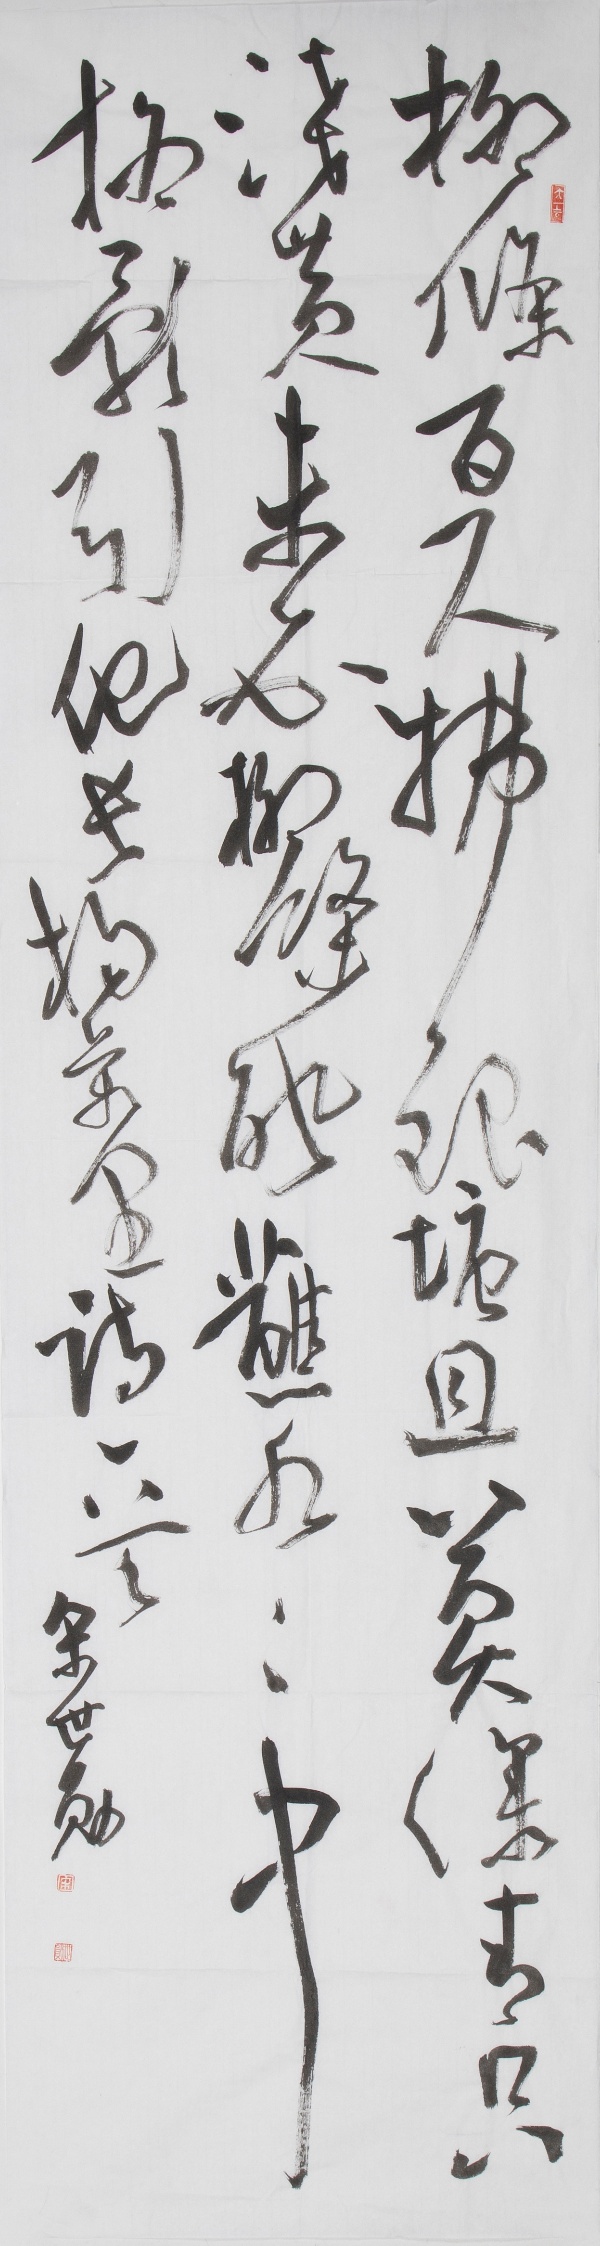 柳條百尺拂銀塘且莫深青只
淺黃未必柳條能蘸水〻中
柳影引他長楊萬里詩一首宋世勛